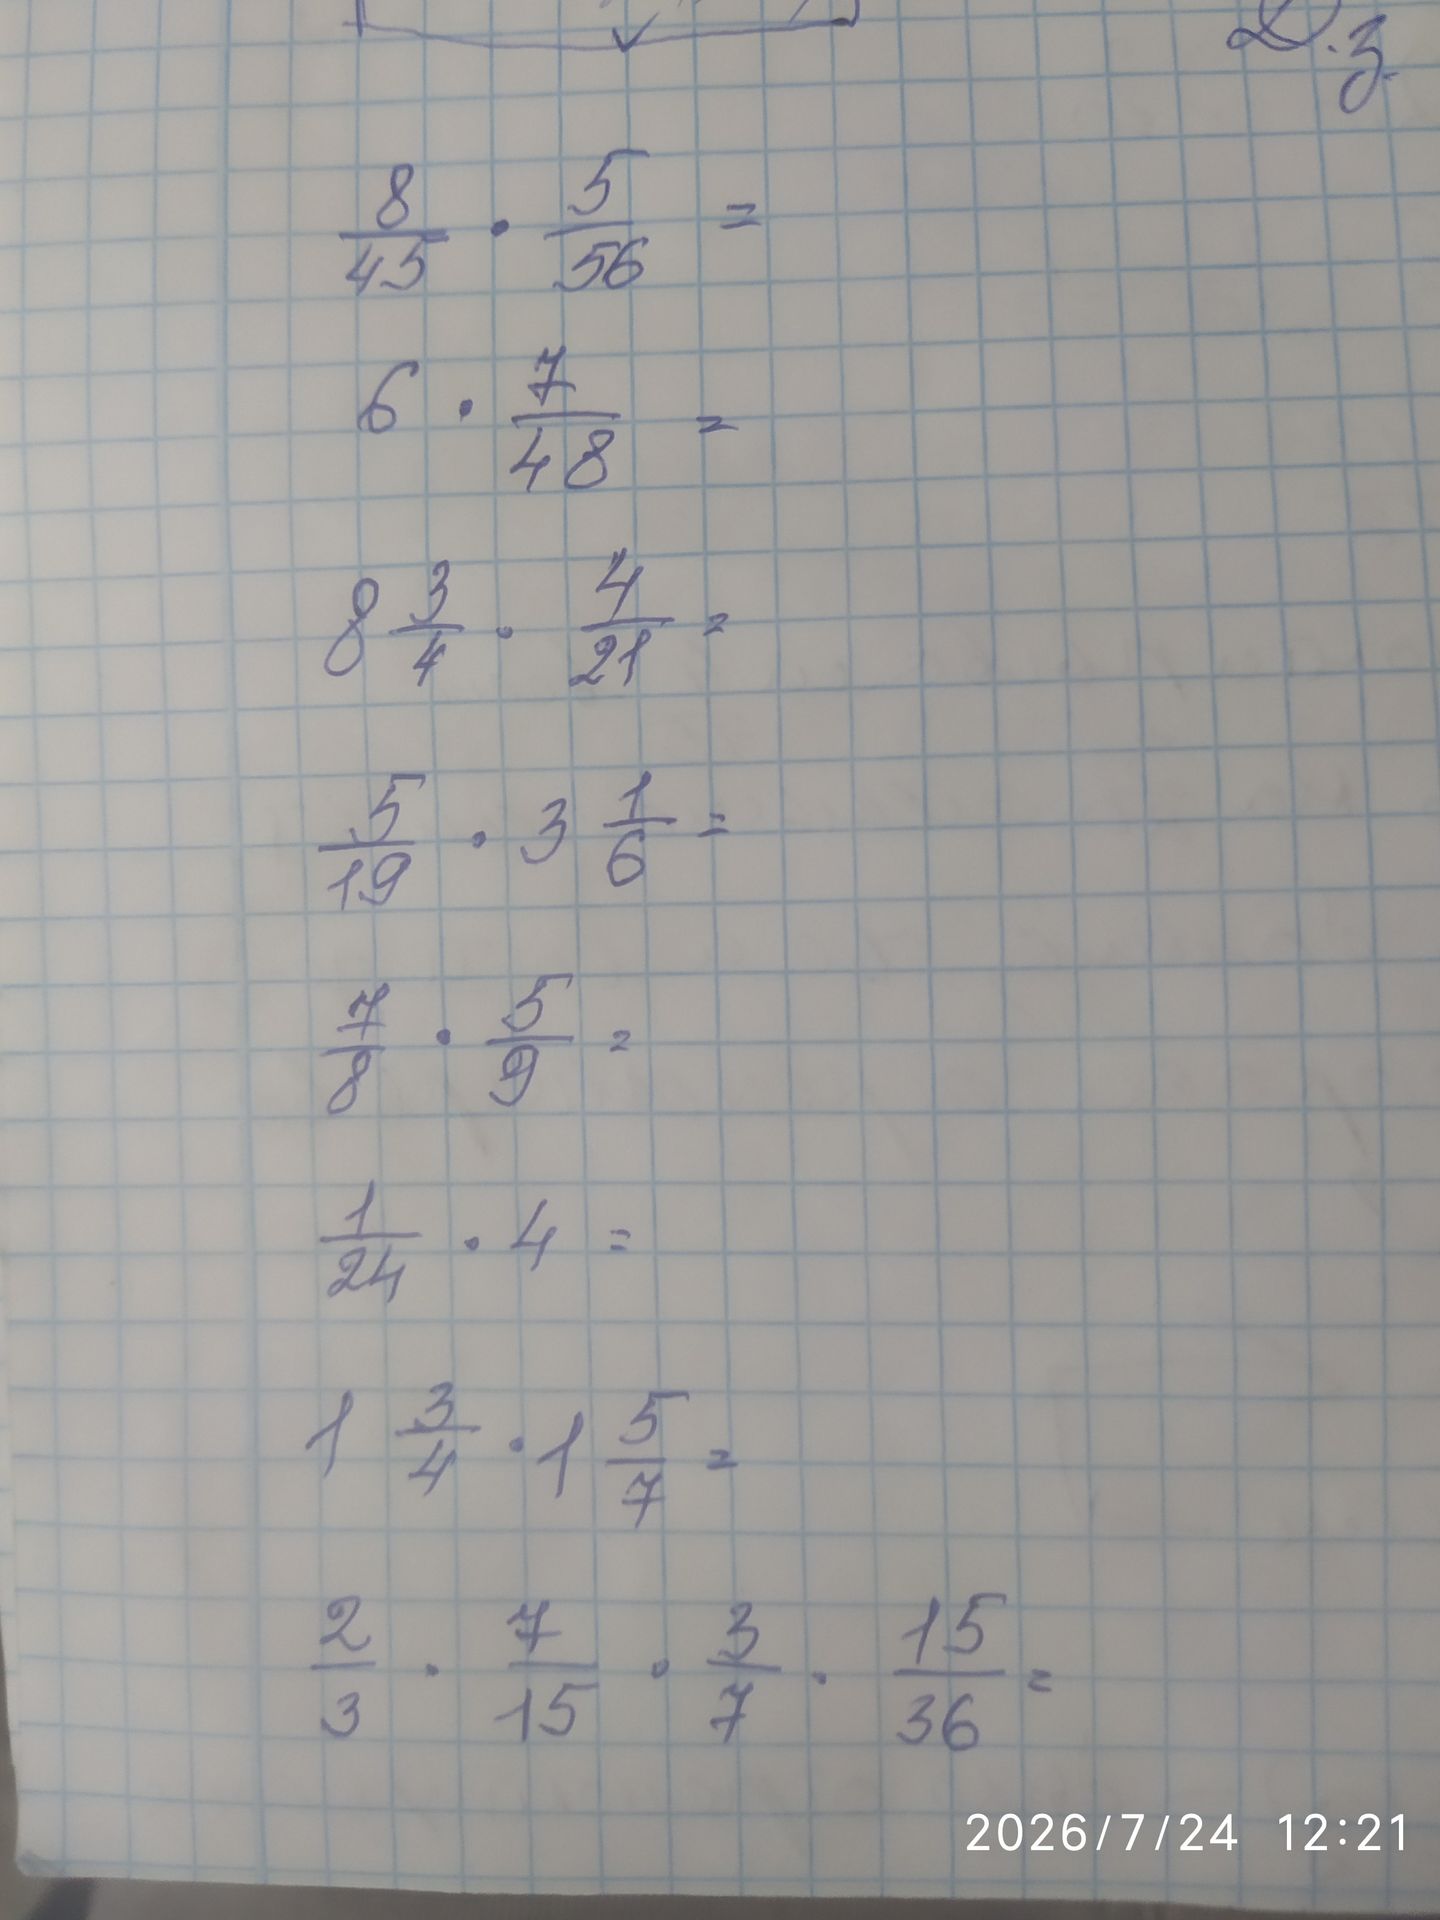 Д.з.
8/45 · 5/56 =
6 · 7/48 =
8 3/4 · 4/21 =
5/19 · 3 1/6 =
7/8 · 5/9 =
1/24 · 4 =
1 3/4 · 1 5/7 =
2/3 · 7/15 · 3/7 · 15/36 =
2026/7/24 12:21